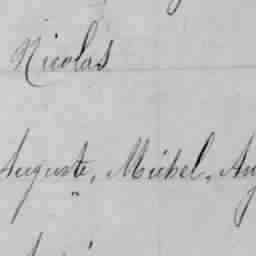 Nicolas
Auguste, Michel, Au